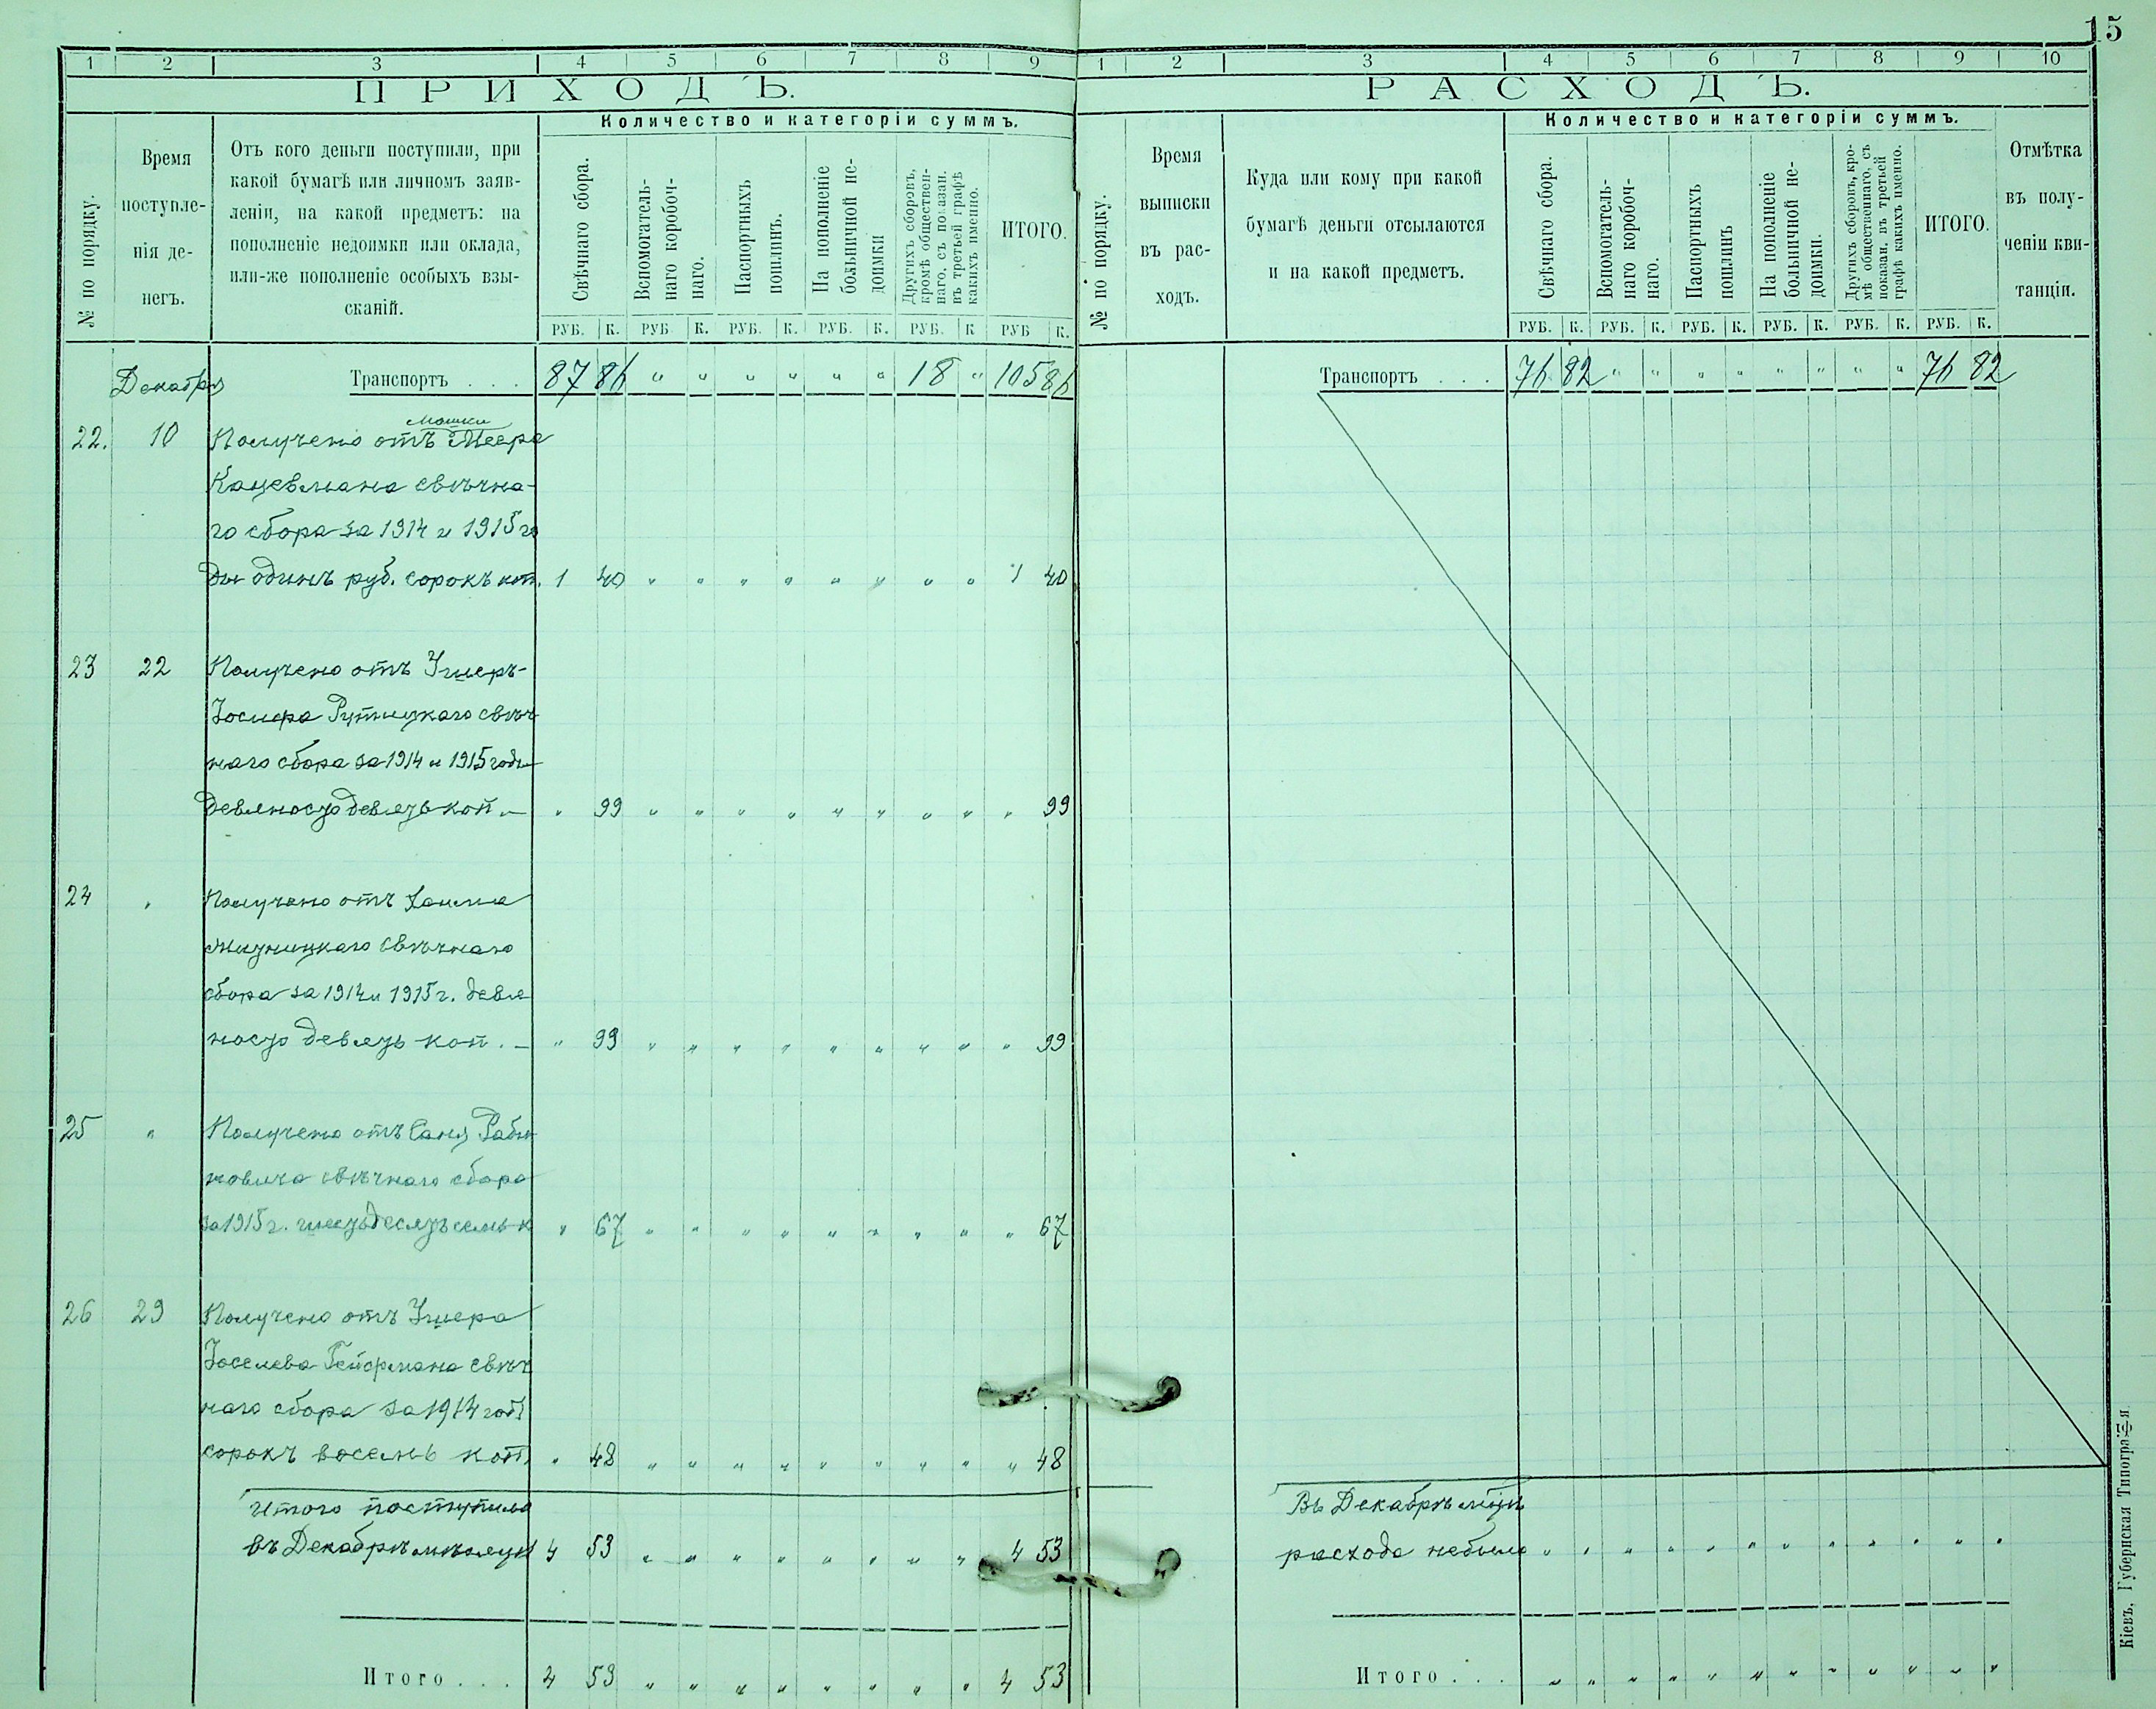 15
1 2 3 4 5 6 7 8 9
ПРИХОДЪ.
№ по порядку.
Время
поступле-
нія де-
негъ.
Отъ кого деньги поступили, при
какой бумагѣ или личномъ заяв-
леніи, на какой предметъ: на
пополненіе недоимки или оклада,
или-же пополненіе особыхъ взы-
сканій.
Количество и категоріи суммъ.
Свѣчнаго сбора.
Вспомогатель-
наго коробоч-
наго.
Паспортныхъ
пошлинъ.
На пополненіе
больничной не-
доимки
Другихъ сборовъ,
кромѣ обществен-
наго, съ показан.
въ третьей графѣ
какихъ именно.
ИТОГО.
РУБ. К. РУБ. К. РУБ. К. РУБ. К. РУБ. К РУБ К.
Декабря Транспортъ . . . 87 86 " " " " " " 18 " 105 86
Мошки
22. 10 Получено отъ Меера
Кацевмана свѣчна-
го сбора за 1914 и 1915 го
ды одинъ руб. сорокъ коп. 1 40 " " " " " " " " 1 40
23 22 Получено отъ Ушеръ-
Іосифа Рутицкаго свѣч
наго сбора за 1914 и 1915 годы
девяносто девять коп. " 99 " " " " " " " " " 99
24 " Получено отъ Хаима
свѣчнаго
сбора за 1914 и 1915 г. девя
носто девять коп. " 99 " " " " " " " " " 99
25 " Получено отъ Раби
новича свѣчнаго сбора
за 1915 г. шестьдесятъ семь к " 67 " " " " " " " " " 67
26 29 Получено отъ Ушера
Іоселева Гейфмана свѣч
наго сбора за 1914 годъ
сорокъ восемь коп. " 48 " " " " " " " " " 48
Итого поступило
въ Декабрѣ мѣсяцѣ 4 53 " " " " " " " " 4 53
Итого . . . 4 53 " " " " " " " " 4 53
1 2 3 4 5 6 7 8 9 10
РАСХОДЪ.
№ по порядку.
Время
выписки
въ рас-
ходъ.
Куда или кому при какой
бумагѣ деньги отсылаются
и на какой предметъ.
Количество и категоріи суммъ.
Свѣчнаго сбора.
Вспомогатель-
наго коробоч-
наго.
Паспортныхъ
пошлинъ
На пополненіе
больничной не-
доимки.
Другихъ сборовъ, кро-
мѣ общественнаго, съ
показан. въ третьей
графѣ какихъ именно.
ИТОГО.
Отмѣтка
въ полу-
ченіи кви-
танціи.
РУБ. К. РУБ. К. РУБ. К. РУБ. К. РУБ. К. РУБ. К.
Транспортъ . . . 76 82 " " " " " " " " 76 82
Въ Декабрѣ мѣцѣ
расхода небыло " " " " " " " " " " " "
Итого . . . " " " " " " " " " " " "
Кіевъ, Губернская Типографія